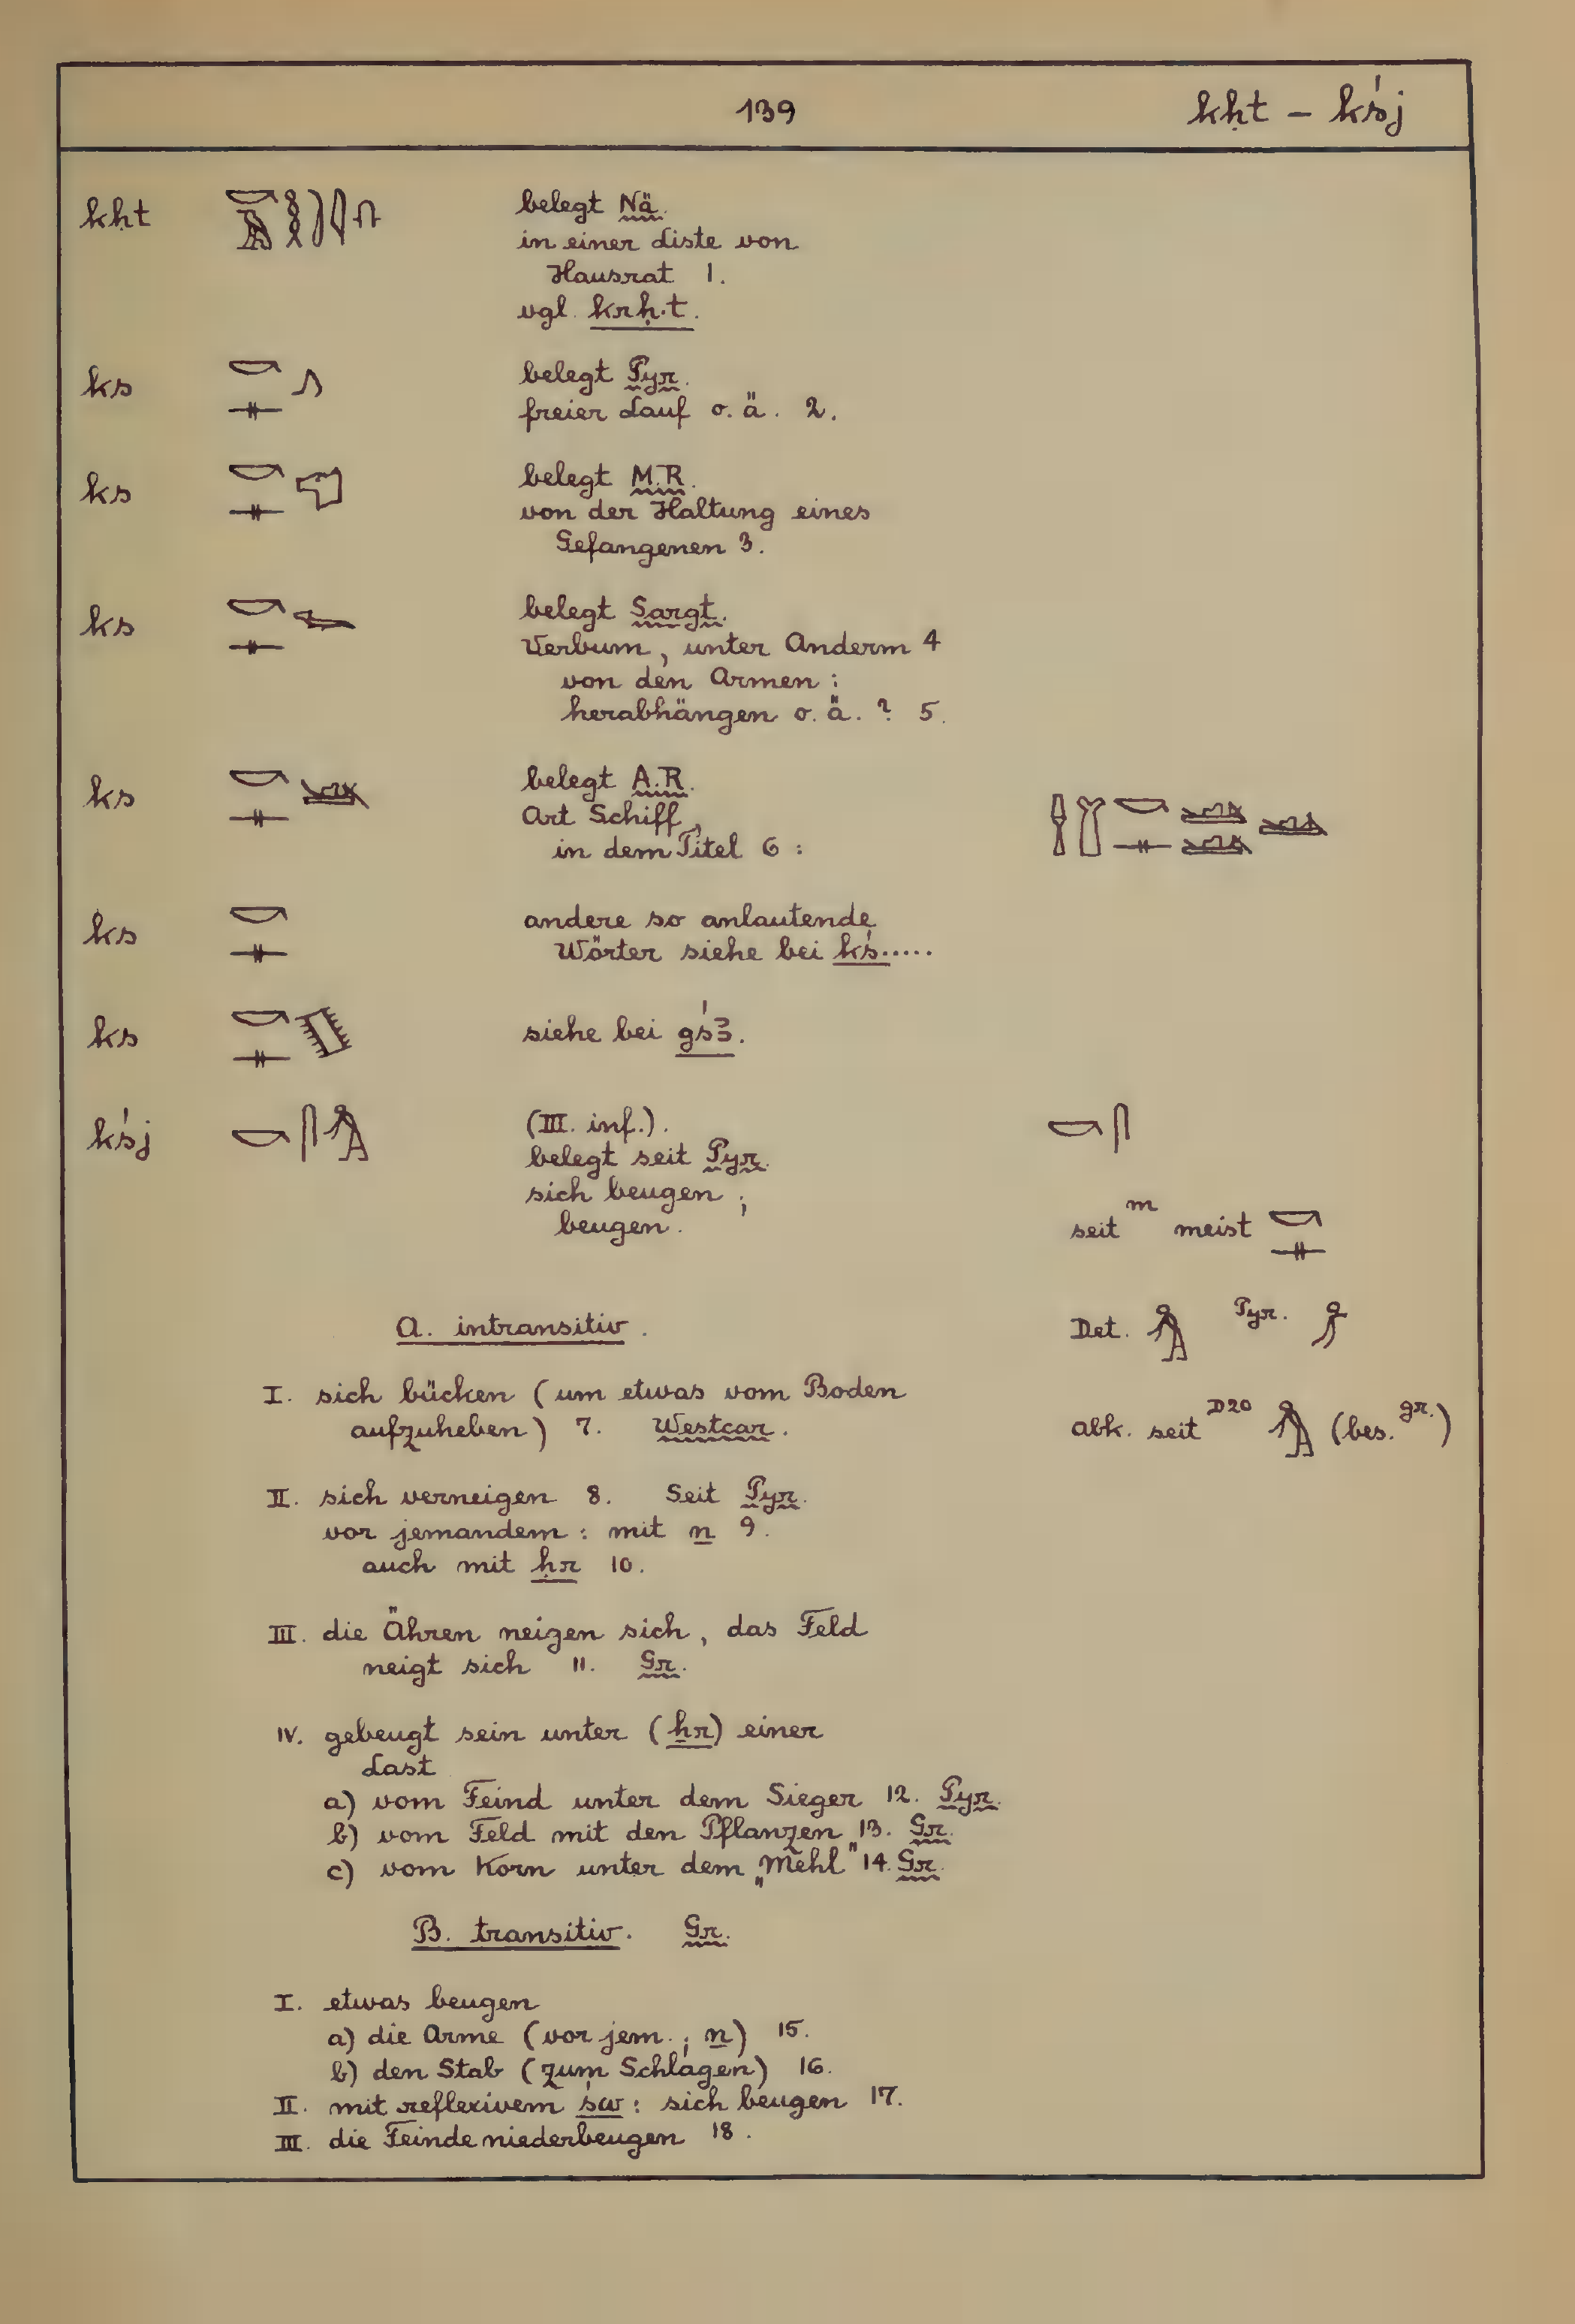 139 kḥt – kśj
kḥt belegt Nä.
in einer Liste von
Hausrat 1.
vgl. krḥ.t.
ks belegt Pyr.
freier Lauf o. ä. 2.
ks belegt M.R.
von der Haltung eines
Gefangenen 3.
ks belegt Sargt.
Verbum, unter Anderm 4
von den Armen:
herabhängen o. ä. ? 5.
ks belegt A.R.
Art Schiff,
in dem Titel 6:
ks andere so anlautende
Wörter siehe bei kś.....
ks siehe bei gśꜣ.
kśj (III. inf.).
belegt seit Pyr.
sich beugen;
beugen.
seit m meist
Det. Pyr.
Abk. seit D20 (bes. gr.)
A. intransitiv.
I. sich bücken (um etwas vom Boden
aufzuheben) 7. Westcar.
II. sich verneigen 8. Seit Pyr.
vor jemandem: mit n 9.
auch mit ḥr 10.
III. die Ähren neigen sich, das Feld
neigt sich 11. Gr.
IV. gebeugt sein unter (ẖr) einer
Last
a) vom Feind unter dem Sieger 12. Pyr.
b) vom Feld mit den Pflanzen 13. Gr.
c) vom Korn unter dem „Mehl" 14. Gr.
B. transitiv. Gr.
I. etwas beugen
a) die Arme (vor jem.; n) 15.
b) den Stab (zum Schlagen) 16.
II. mit reflexivem św: sich beugen 17.
III. die Feinde niederbeugen 18.